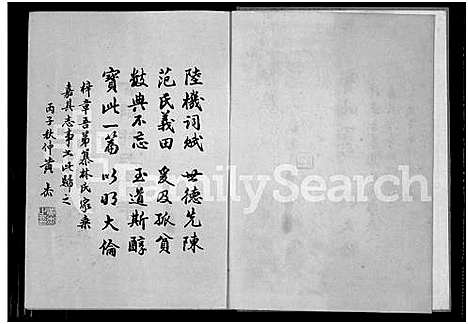 陸機詞賦 世德先陳
范氏義田 爰及孤貧
數典不忘 至道斯醇
寶此一篇 以明大倫
梓章吾弟纂林氏家乘
嘉其志事以此歸之
丙子秋仲黃
FamilySearch